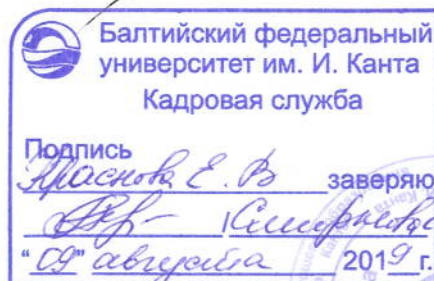 Балтийский федеральный
университет им. И. Канта
Кадровая служба
Подпись
Краснова Е. В заверяю
"09" августа 2019 г.